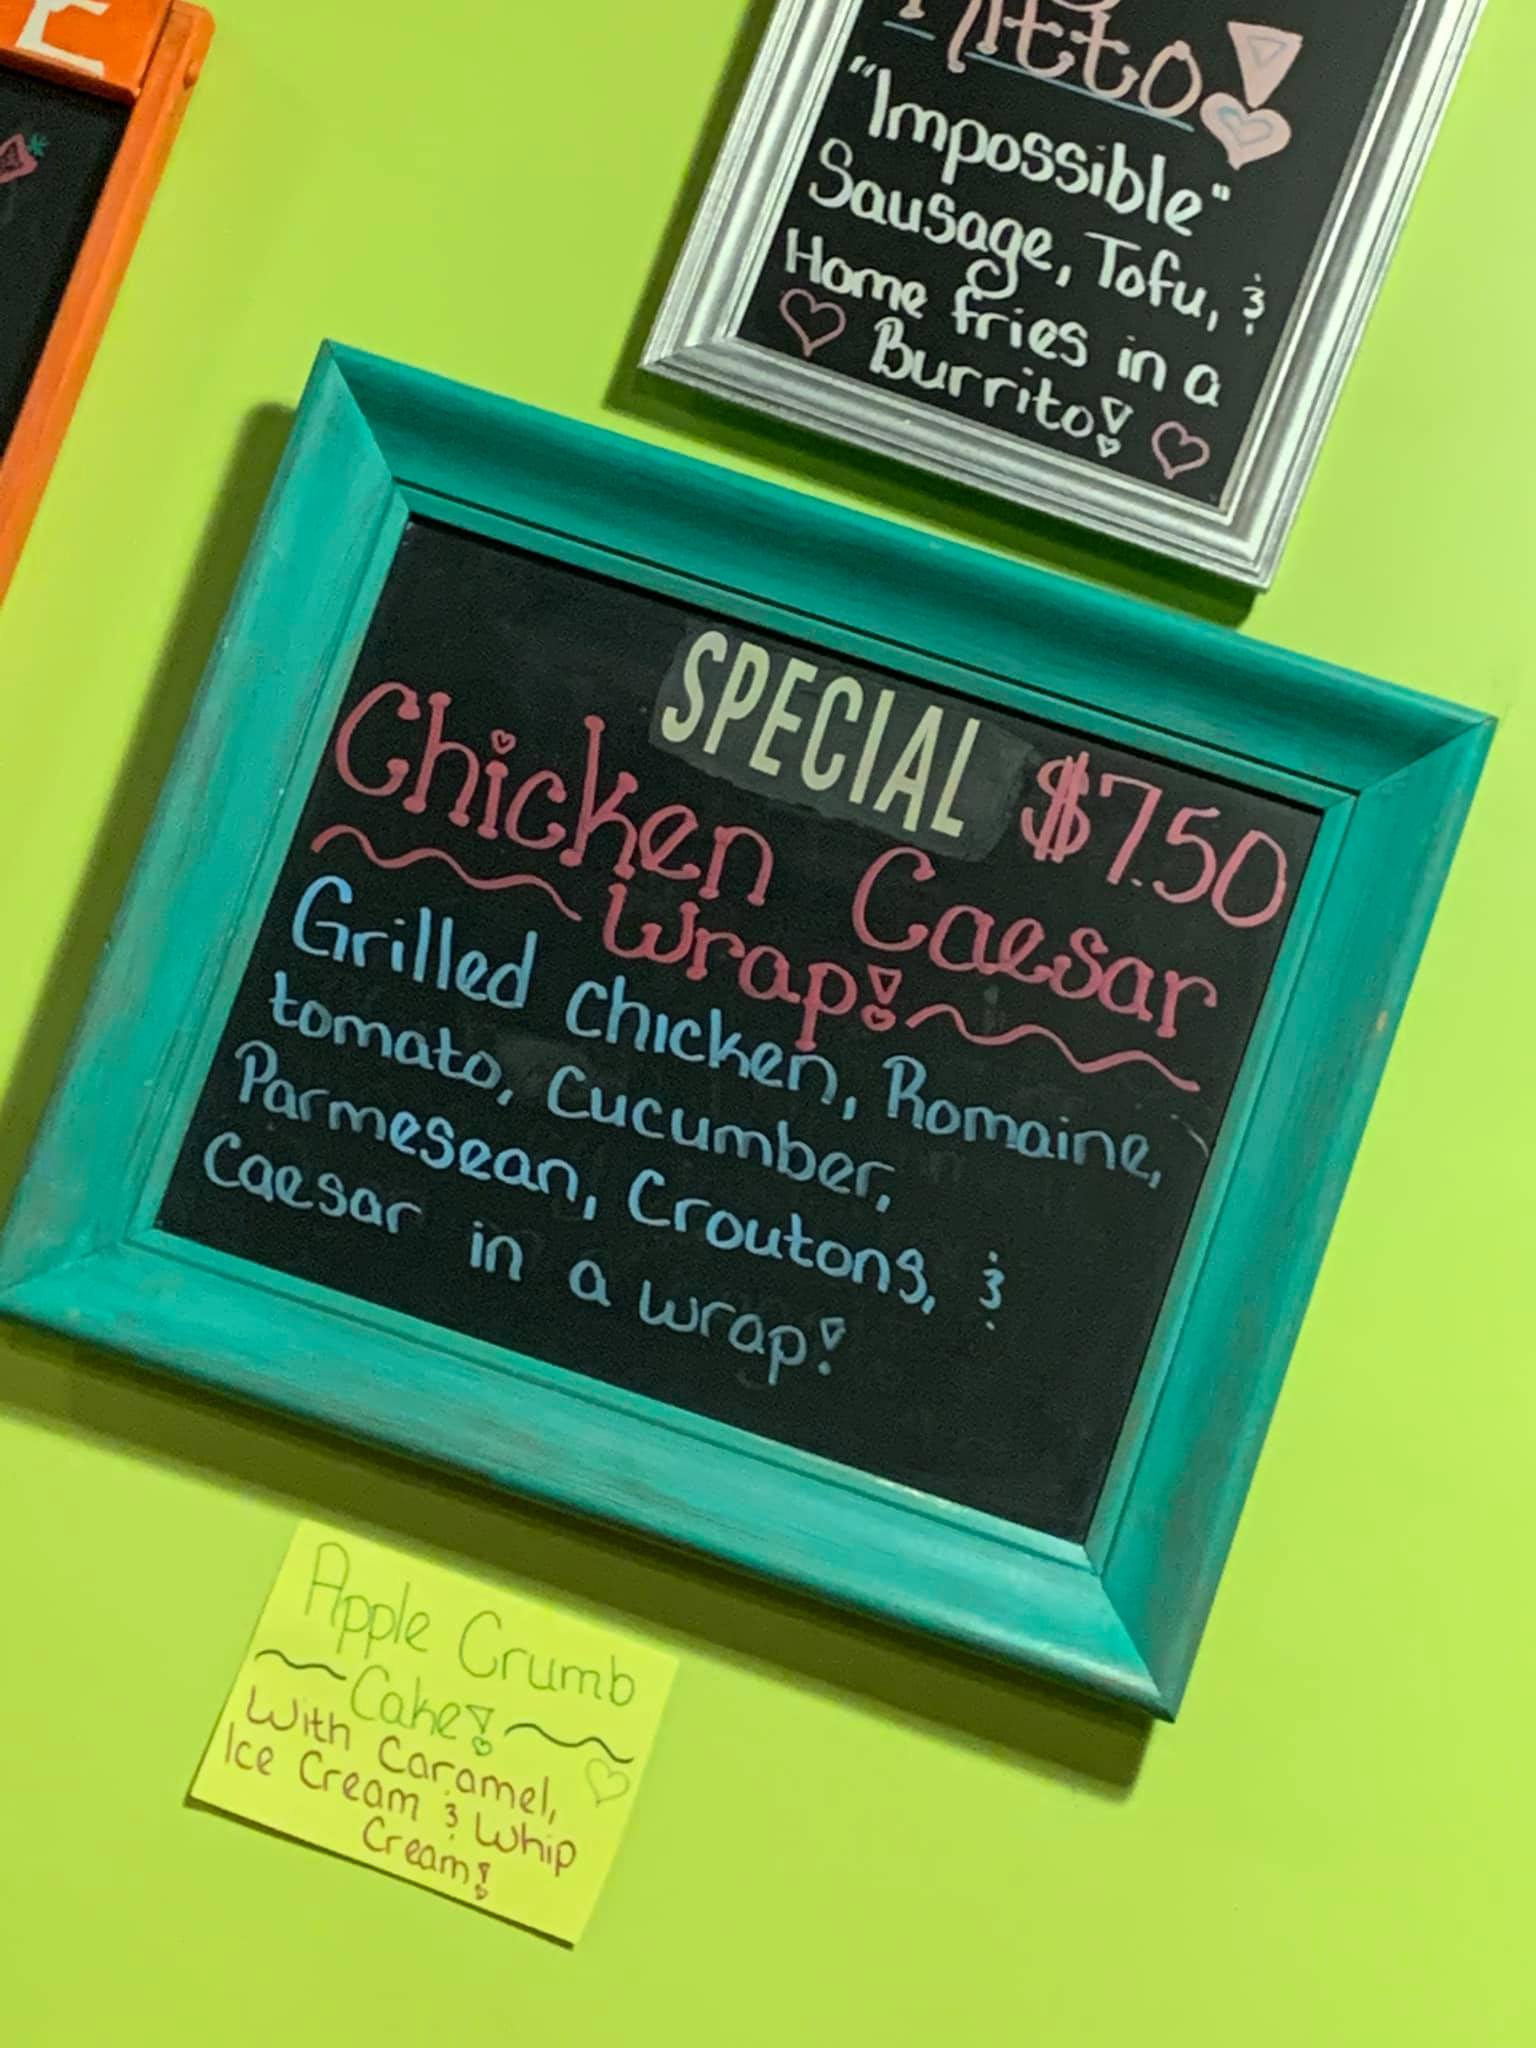 "Impossible"
Sausage, Tofu, &
Home fries in a
Burrito!
SPECIAL $7.50
Chicken Caesar
Wrap!
Grilled chicken, Romaine,
tomato, Cucumber,
Parmesean, Croutons, &
Caesar in a wrap!
Apple Crumb
Cake!
With Caramel,
Ice Cream & Whip
Cream!